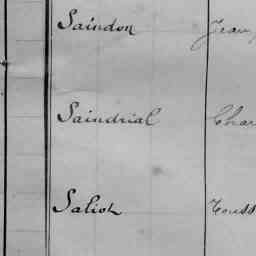 Saindon Jean
Saindrial Char
Salioh Touss